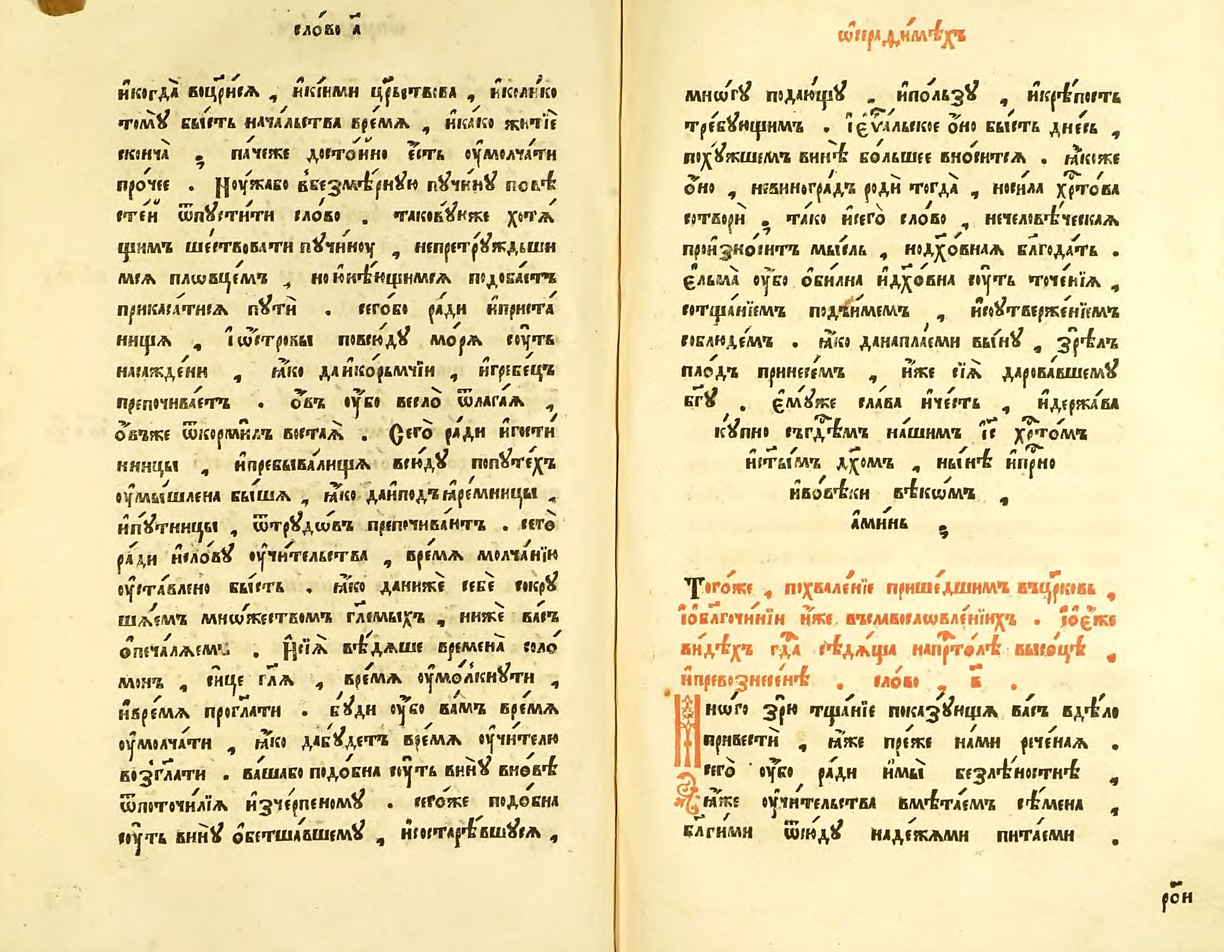 сло́во а҃
и҆когда̀ воцр҃и́сѧ , и҆кі́ими цр҃ьствова , и҆коли́ко
томꙋ̀ бы́сть нача́льства вре́мѧ , и҆ка́ко житїѐ
сконча̀ ; па́чеже досто́йно є҆́сть оу҆молча́ти
про́чее . Ноу́жабо вбезмѣ́рнꙋю пꙋчи́нꙋ повѣ
сте́й ѿпꙋсти́ти сло́во . такову́юже хотѧ́
щимъ ше́ствовати пꙋчи́ноу , непретрꙋжьши
мсѧ пловцє́мъ , но и҆имꙋ́щимсѧ подоба́етъ
прикаса́тисѧ пꙋтѝ . сего́бо ра́ди и҆приста́
нища , і҆ѡ҆́стровы повсю́дꙋ мо́рѧ соу́ть
насажде́ни , ꙗ҆́ко да и҆ко́рьмчїи , и҆гребе́цъ
препочива́етъ . ѻ҆́въ оу҆́бо весло̀ ѿлага́ѧ ,
ѻ҆́въже ѿкорми́лъ воста́ѧ . Сего̀ ра́ди и҆гости́
нницы , и҆пребыва́лища всю́дꙋ попꙋте́хъ
оу҆мы́шлена бы́ша , ꙗ҆́ко даи҆подъꙗ҆ре́мницы ,
и҆пꙋ́тницы , ѿтрꙋдѡ́въ препочива́ютъ . сего̀
ра́ди и҆сло́вꙋ оу҆чи́тельства , вре́мѧ молча́нїю
оу҆ста́влено бы́сть . ꙗ҆́ко дани́же себѐ сокрꙋ
ша́емъ мно́жествомъ гл҃емыхъ , ни́же ва́съ
ѻ҆печалѧ́емъ . И҆сїѧ̀ вѣ́дѧше времена̀ соло
мо́нъ , си́це гл҃ѧ , вре́мѧ оу҆мо́лкнꙋти ,
и҆вре́мѧ прогл҃ати . бꙋ́ди оу҆́бо ва́мъ вре́мѧ
оу҆молча́ти , ꙗ҆́ко дабꙋ́детъ вре́мѧ оу҆чи́телю
возгл҃ати . ва́шабо подо́бна соу́ть винꙋ̀ вно́вѣ
ѿпоточи́лїѧ и҆зче́рпеномꙋ . сего́же подо́бна
соу́ть винꙋ̀ ѻ҆бетша́вшемꙋ , и҆состарѣ́вшꙋсѧ ,
ѡ҆серади́мѣхъ
мнѡ́гꙋ подаю́щꙋ , и҆по́льзꙋ , и҆крѣ́пость
тре́бꙋющимъ . і҆єѵⷢ҇а́льское ѻ҆́но бы́сть дне́сь ,
похꙋ́жшемъ винѣ̀ бо́льшее вно́ситсѧ . ꙗ҆́коже
ѻ҆́но , невиногра́дъ родѝ тогда̀ , но си́ла хрⷭ҇то́ва
сотворѝ ; та́ко и҆сего̀ сло́во , нечеловѣ́ческаѧ
произно́ситъ мы́сль , нодх҃о́внаѧ блг҃ода́ть .
є҆льма̀ оу҆́бо ѻ҆би́лна и҆дх҃о́вна соу́ть точе́нїѧ ,
сотща́нїемъ поды́мемъ , и҆соутверже́нїемъ
соблюде́мъ . ꙗ҆́ко данапаѧ́еми вы́нꙋ , зрѣ́лъ
пло́дъ принесе́мъ , и҆́же сїѧ̀ дарова́вшемꙋ
бг҃ꙋ . є҆мꙋ́же сла́ва и҆че́сть , и҆держа́ва
кꙋ́пно съгдⷭ҇емъ на́шимъ і҆с҃ хрⷭ҇то́мъ
и҆ст҃ы́мъ дх҃омъ , ны́нѣ и҆пр҇но
и҆вовѣ́ки вѣкѡ́мъ ,
а҆ми́нь ;
Того́же , похвале́нїе прише́дшимъ въцр҃ковь ,
і҆ѻ҆бл҃гочи́нїи и҆́же въславосло́вленїихъ . і҆ѻ҆є҆́же
ви́дѣхъ гдⷭ҇а сѣдѧ́ща напрⷭ҇то́лѣ высо́цѣ ,
и҆превознесе́нѣ . сло́во , в҃ .
Мно́го зрю̀ тща́нїе показꙋ́юща ва́съ вдѣ́ло
привестѝ , ꙗ҆́же пре́же на́ми рече́наѧ .
сего̀ оу҆́бо ра́ди и҆мы̀ безлѣ́ностнѣ ,
ꙗ҆́же оу҆чи́тельства вмѣта́емъ сѣ́мена ,
бл҃гими ѿю́дꙋ наде́жѧми пита́еми .
роⷩ҇